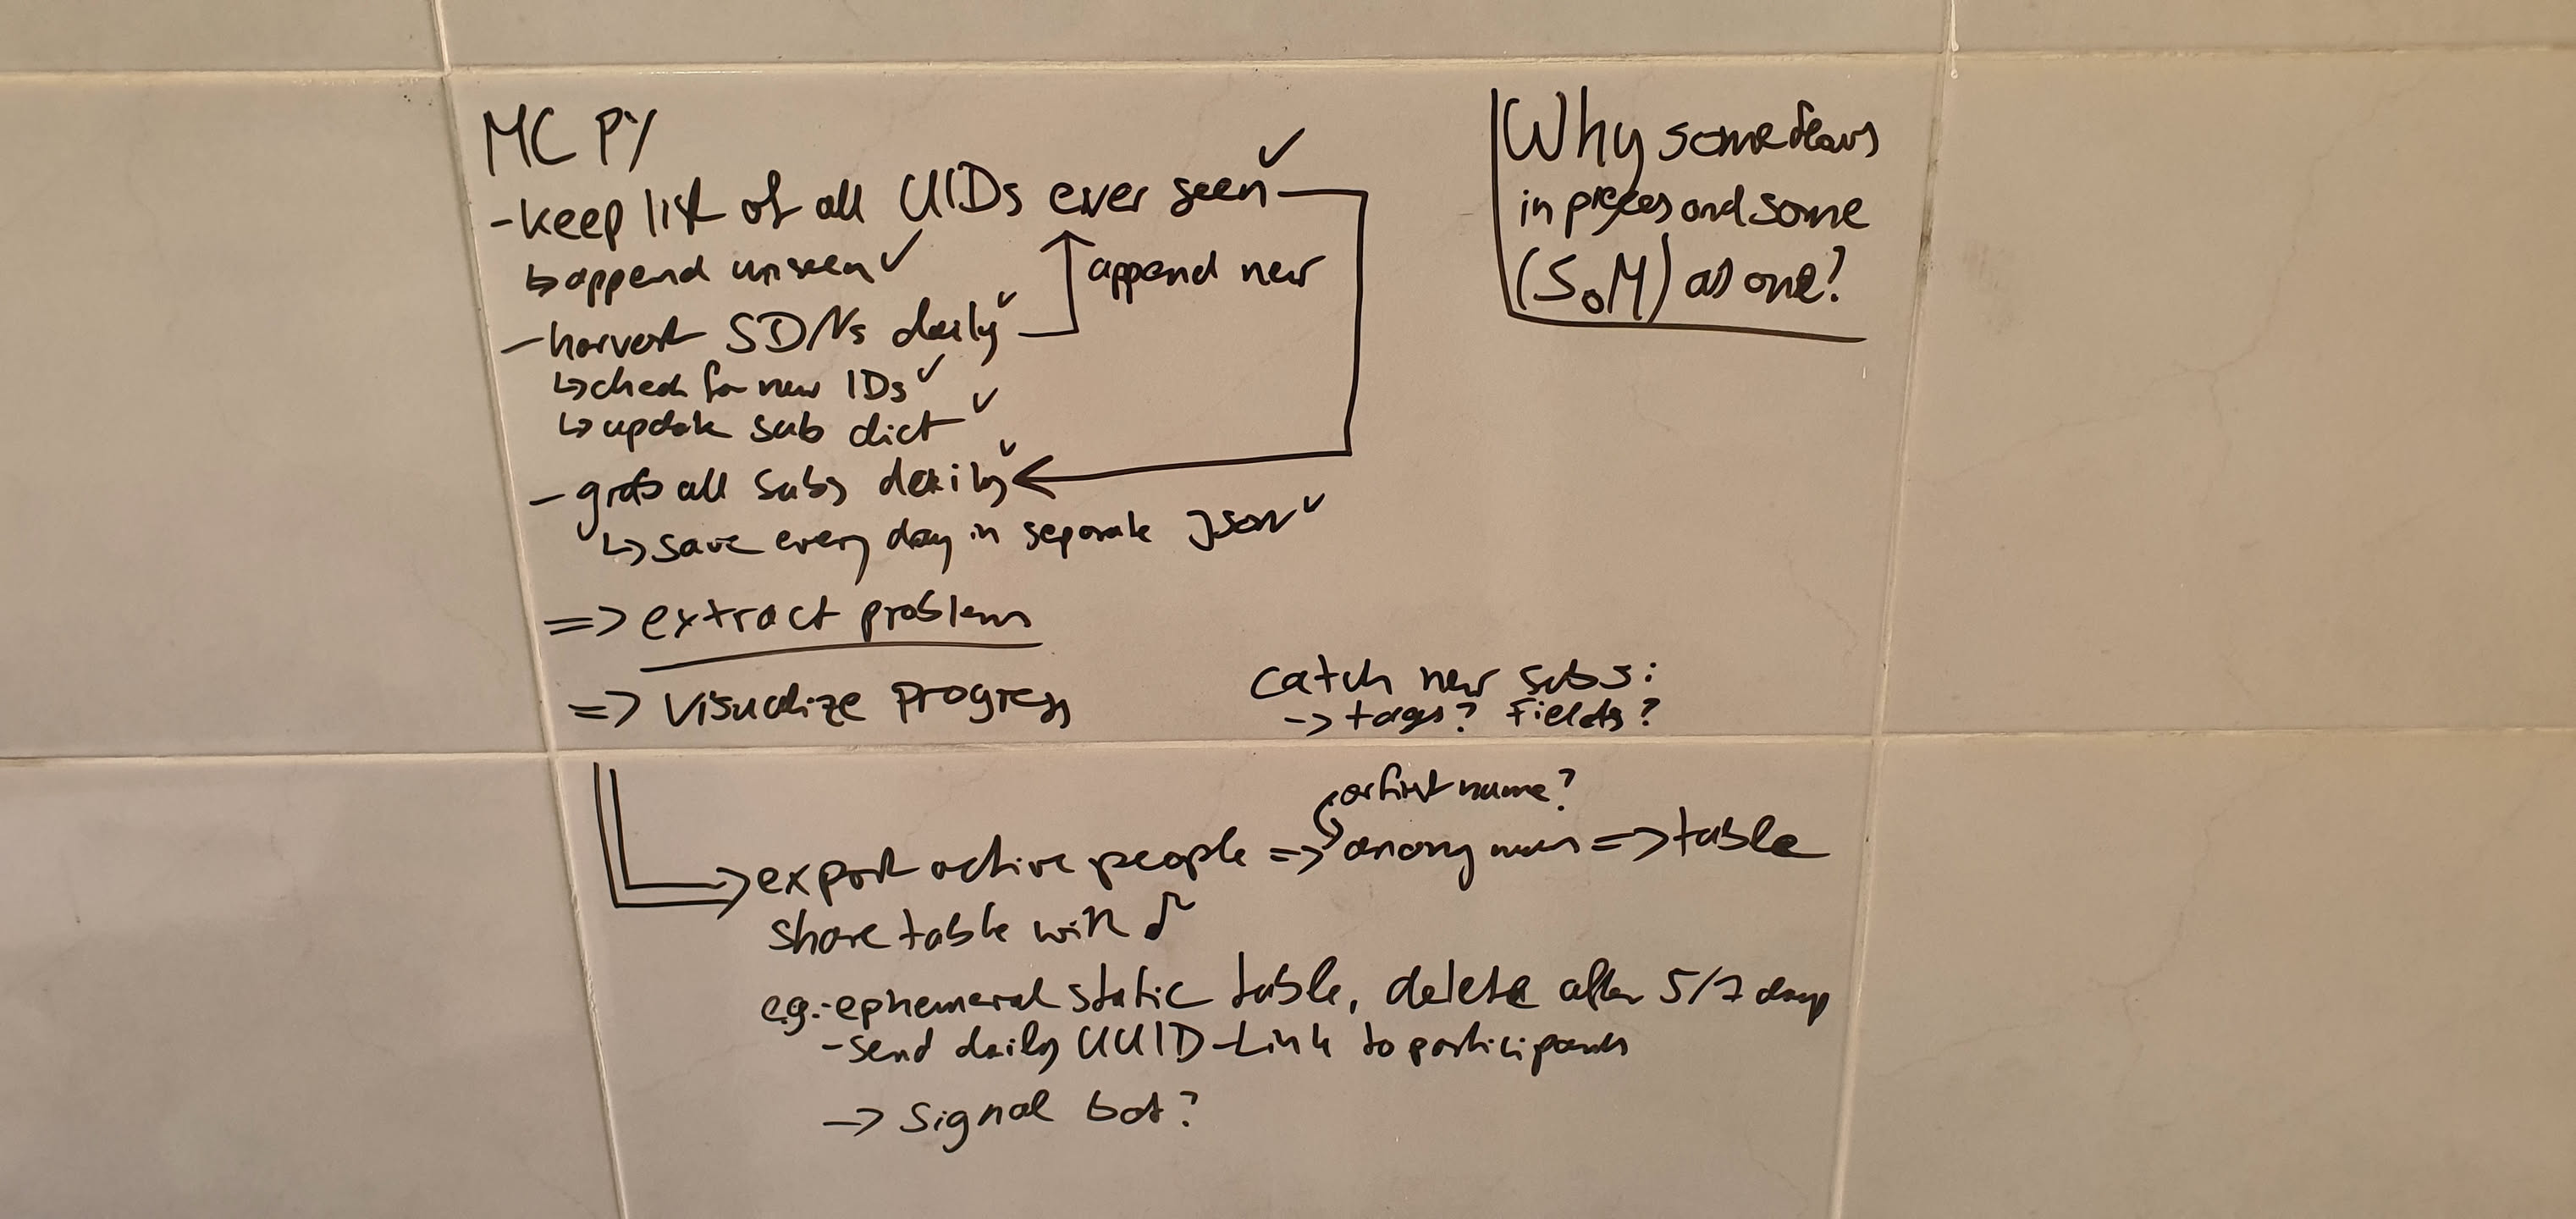 MC PY
- keep list of all UIDs ever seen ✓
↳ append unseen ✓
append new
- harvest SDNs daily ✓
↳ check for new IDs ✓
↳ update sub dict ✓
- grab all subs daily ✓
↳ save every day in separate JSON ✓
=> extract problem
=> visualize progress
Why some
in pieces and some
(SoM) as one?
catch new subs:
-> tags? Fields?
or first name?
export active people => => table
share table with
e.g.: - ephemeral static table, delete after 5/7 days
- send daily UUID-Link to participants
-> Signal bot?